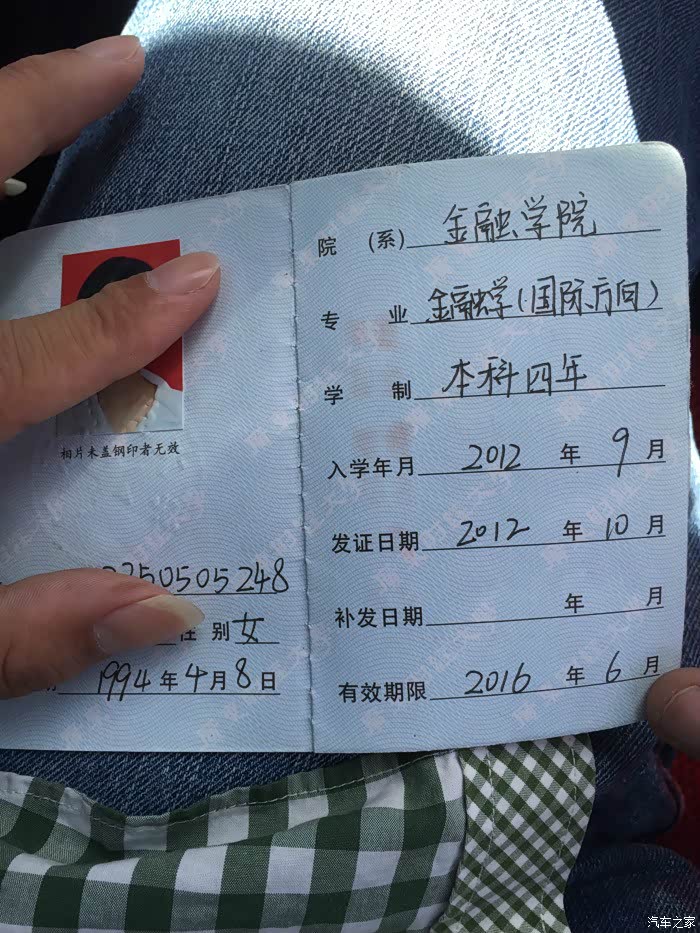 相片未盖钢印者无效
2250505248
性 别 女
1994 年 4 月 8 日
院 (系) 金融学院
专 业 金融学(国际方向)
学 制 本科四年
入学年月 2012 年 9 月
发证日期 2012 年 10 月
补发日期 年 月
有效期限 2016 年 6 月
汽车之家